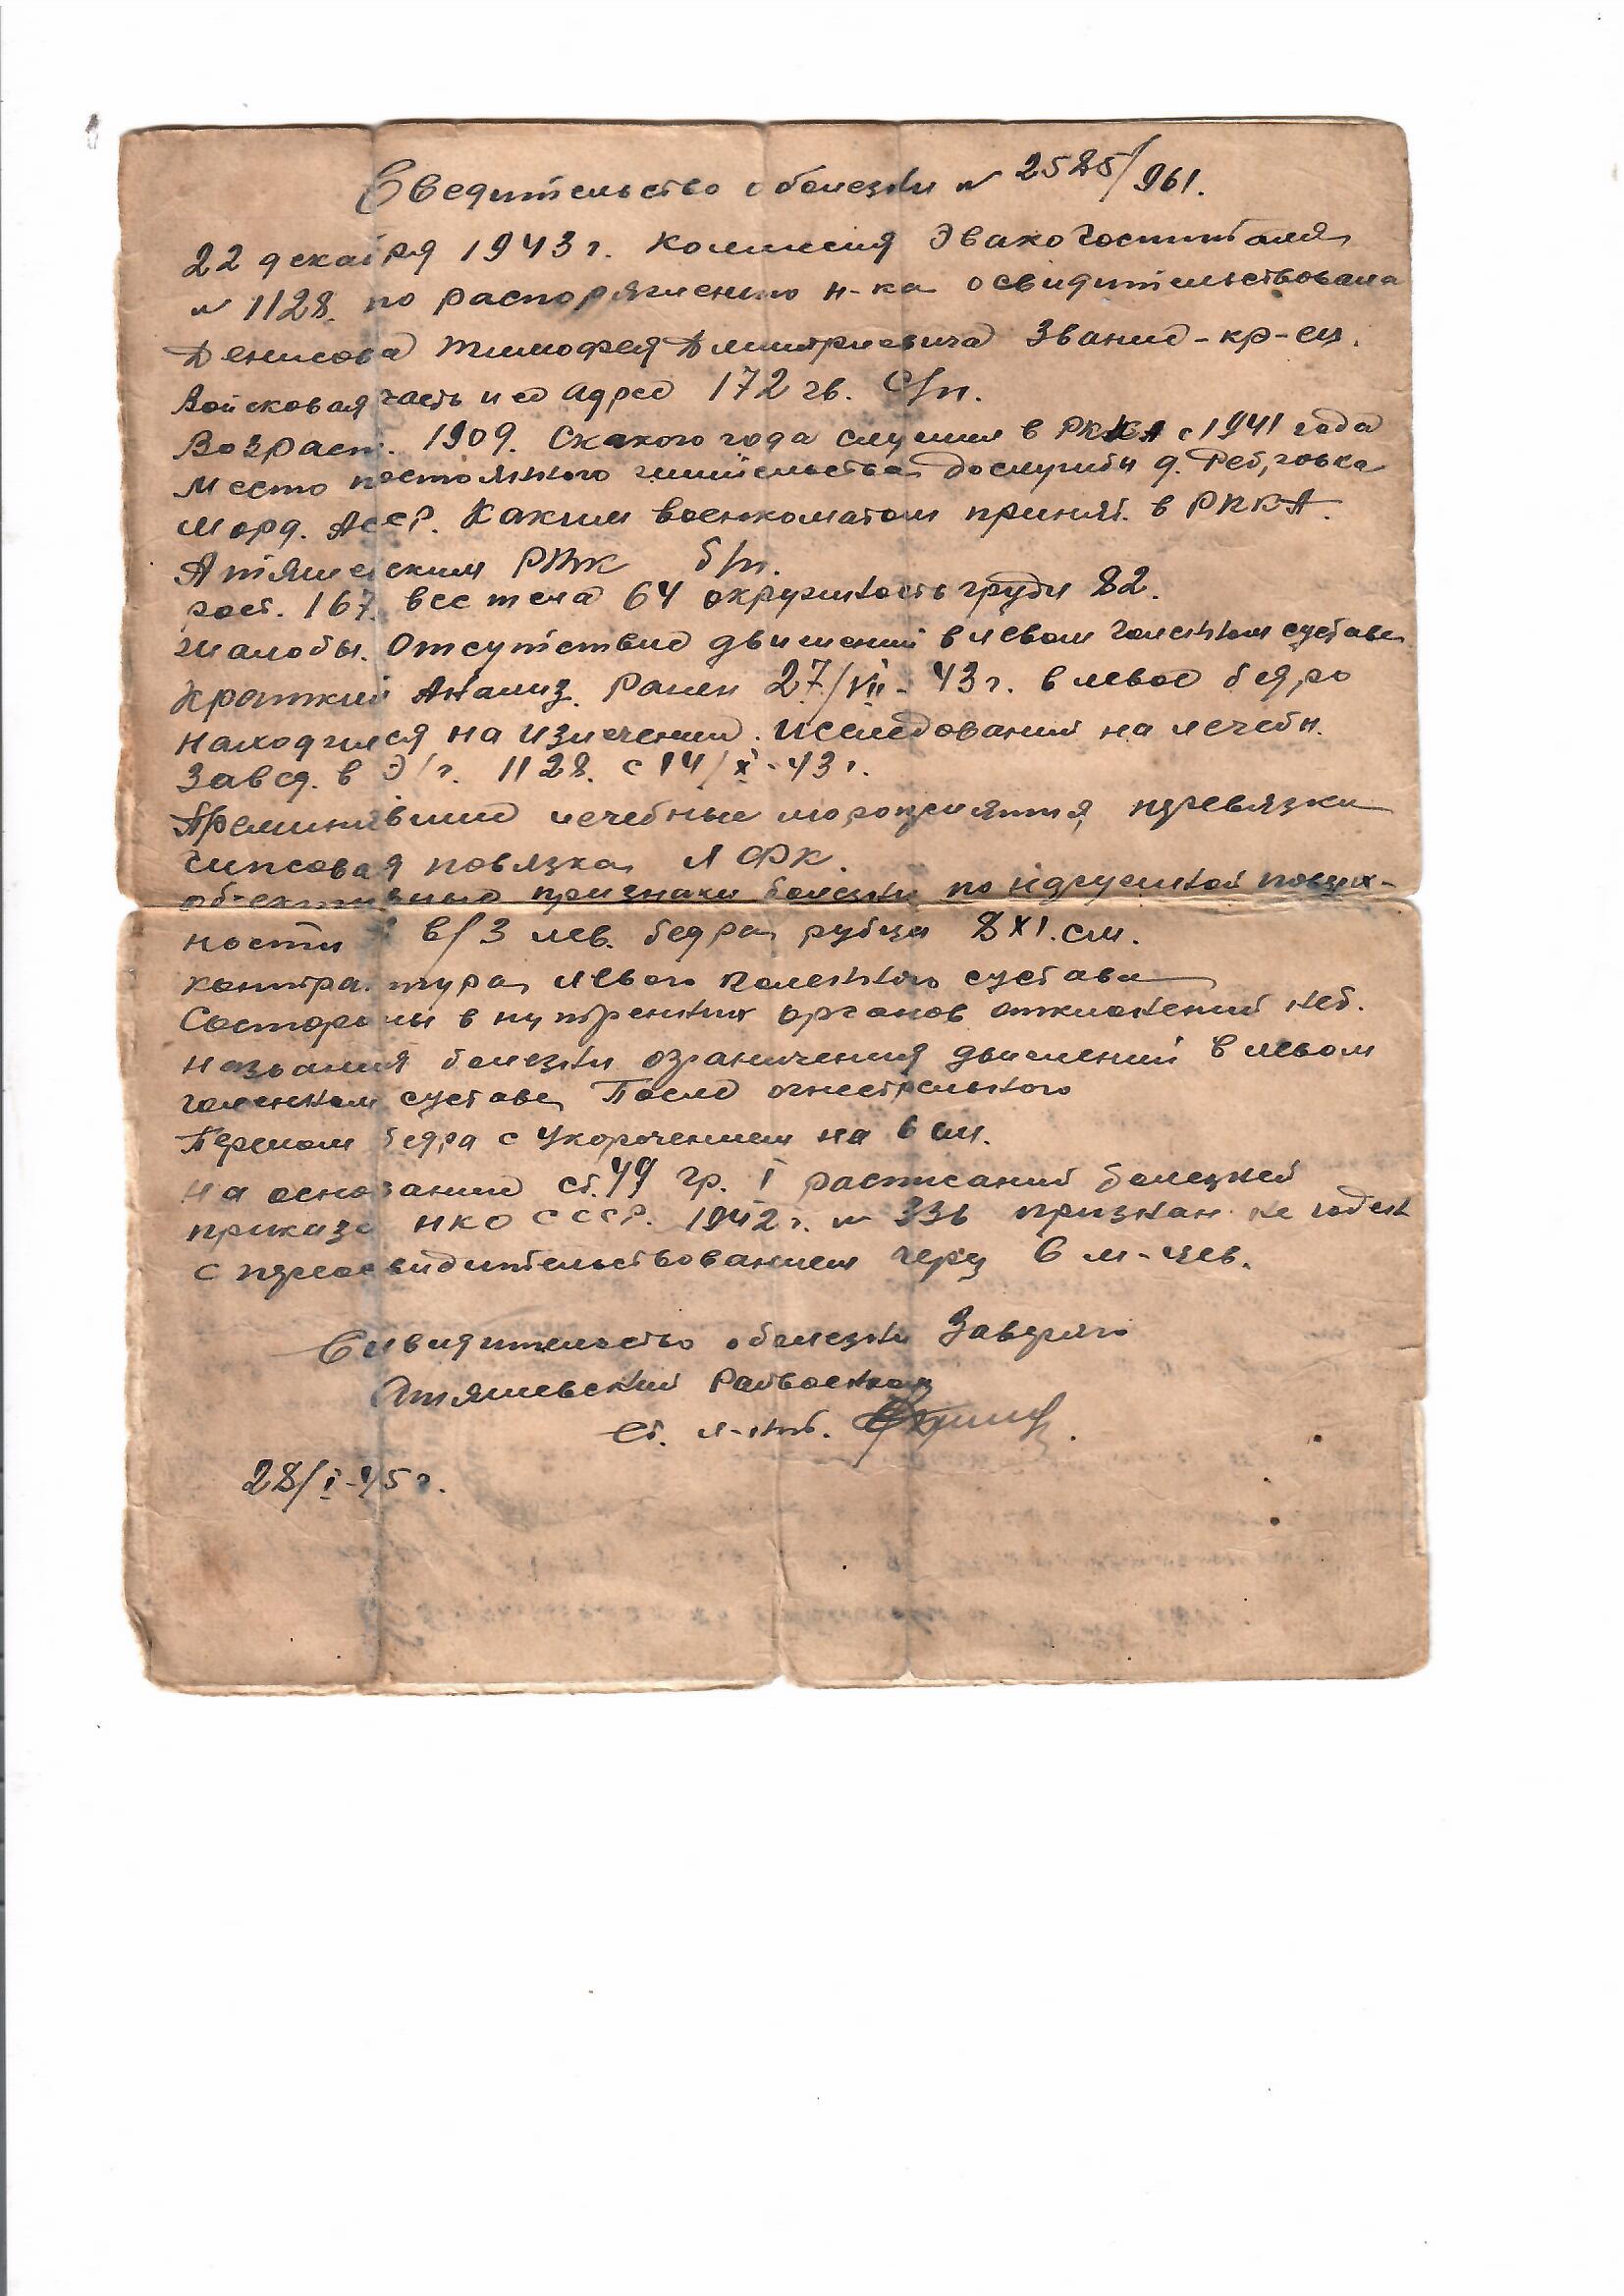 Сведительство о болезни № 2585/961.
22 декабря 1943 г. комиссия Эвакогоспиталя
№ 1128. по распоряжению н-ка освидительствовала
Денисова Тимофея Дмитриевича Звание - кр-ец.
Войсковая часть и ее адрес 172 гв. С/п.
Возраст. 1909. С какого года служил в РККА с 1941 года
Место постоянного жительства до службы д.
Морд. АССР. Каким военкоматом принят. в РККА.
Атяшевским РВК б/п.
рост. 167. вес тела 64 окружность груди 82.
жалобы. Отсутствие движений в левом коленном суставе
Краткий Анализ. Ранен 27/VII - 43 г. в левое бедро
находился на излечении. Иследований на лечебн.
Завед. в Э/г. 1128. с 14/X - 43 г.
лечебные мероприятия, перевязки
гипсовая повязка ЛФК.
объективные признаки болезни по наружной поверх-
ности в/3 лев. бедра рубец 8X1. см.
контрактура левого коленного сустава
Состороны внутренних органов отклонений нет.
названия болезни ограничения движений в левом
коленном суставе После огнестрельного
Перелом бедра с укорочением на 6 см.
На основании ст. 49 гр. I расписаний болезней
приказа НКО СССР. 1942 г. № 336 признан не годен
с переосвидительствованием через 6 м-цев.
Сивидительство о болезни Заверяю
Атяшевский Райвоенком
Ст. л-нт.
28/I - 45 г.